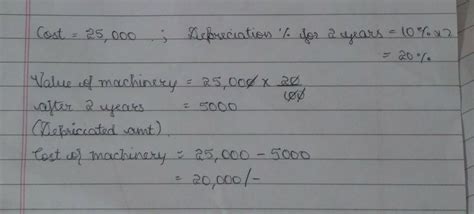 Cost = 25,000 ; Depreciation % for 2 years = 10% x 2
= 20%
Value of machinery = 25,000 x 20/100
after 2 years = 5000
(Depriciated amt)
Cost of machinery = 25,000 - 5000
= 20,000/-